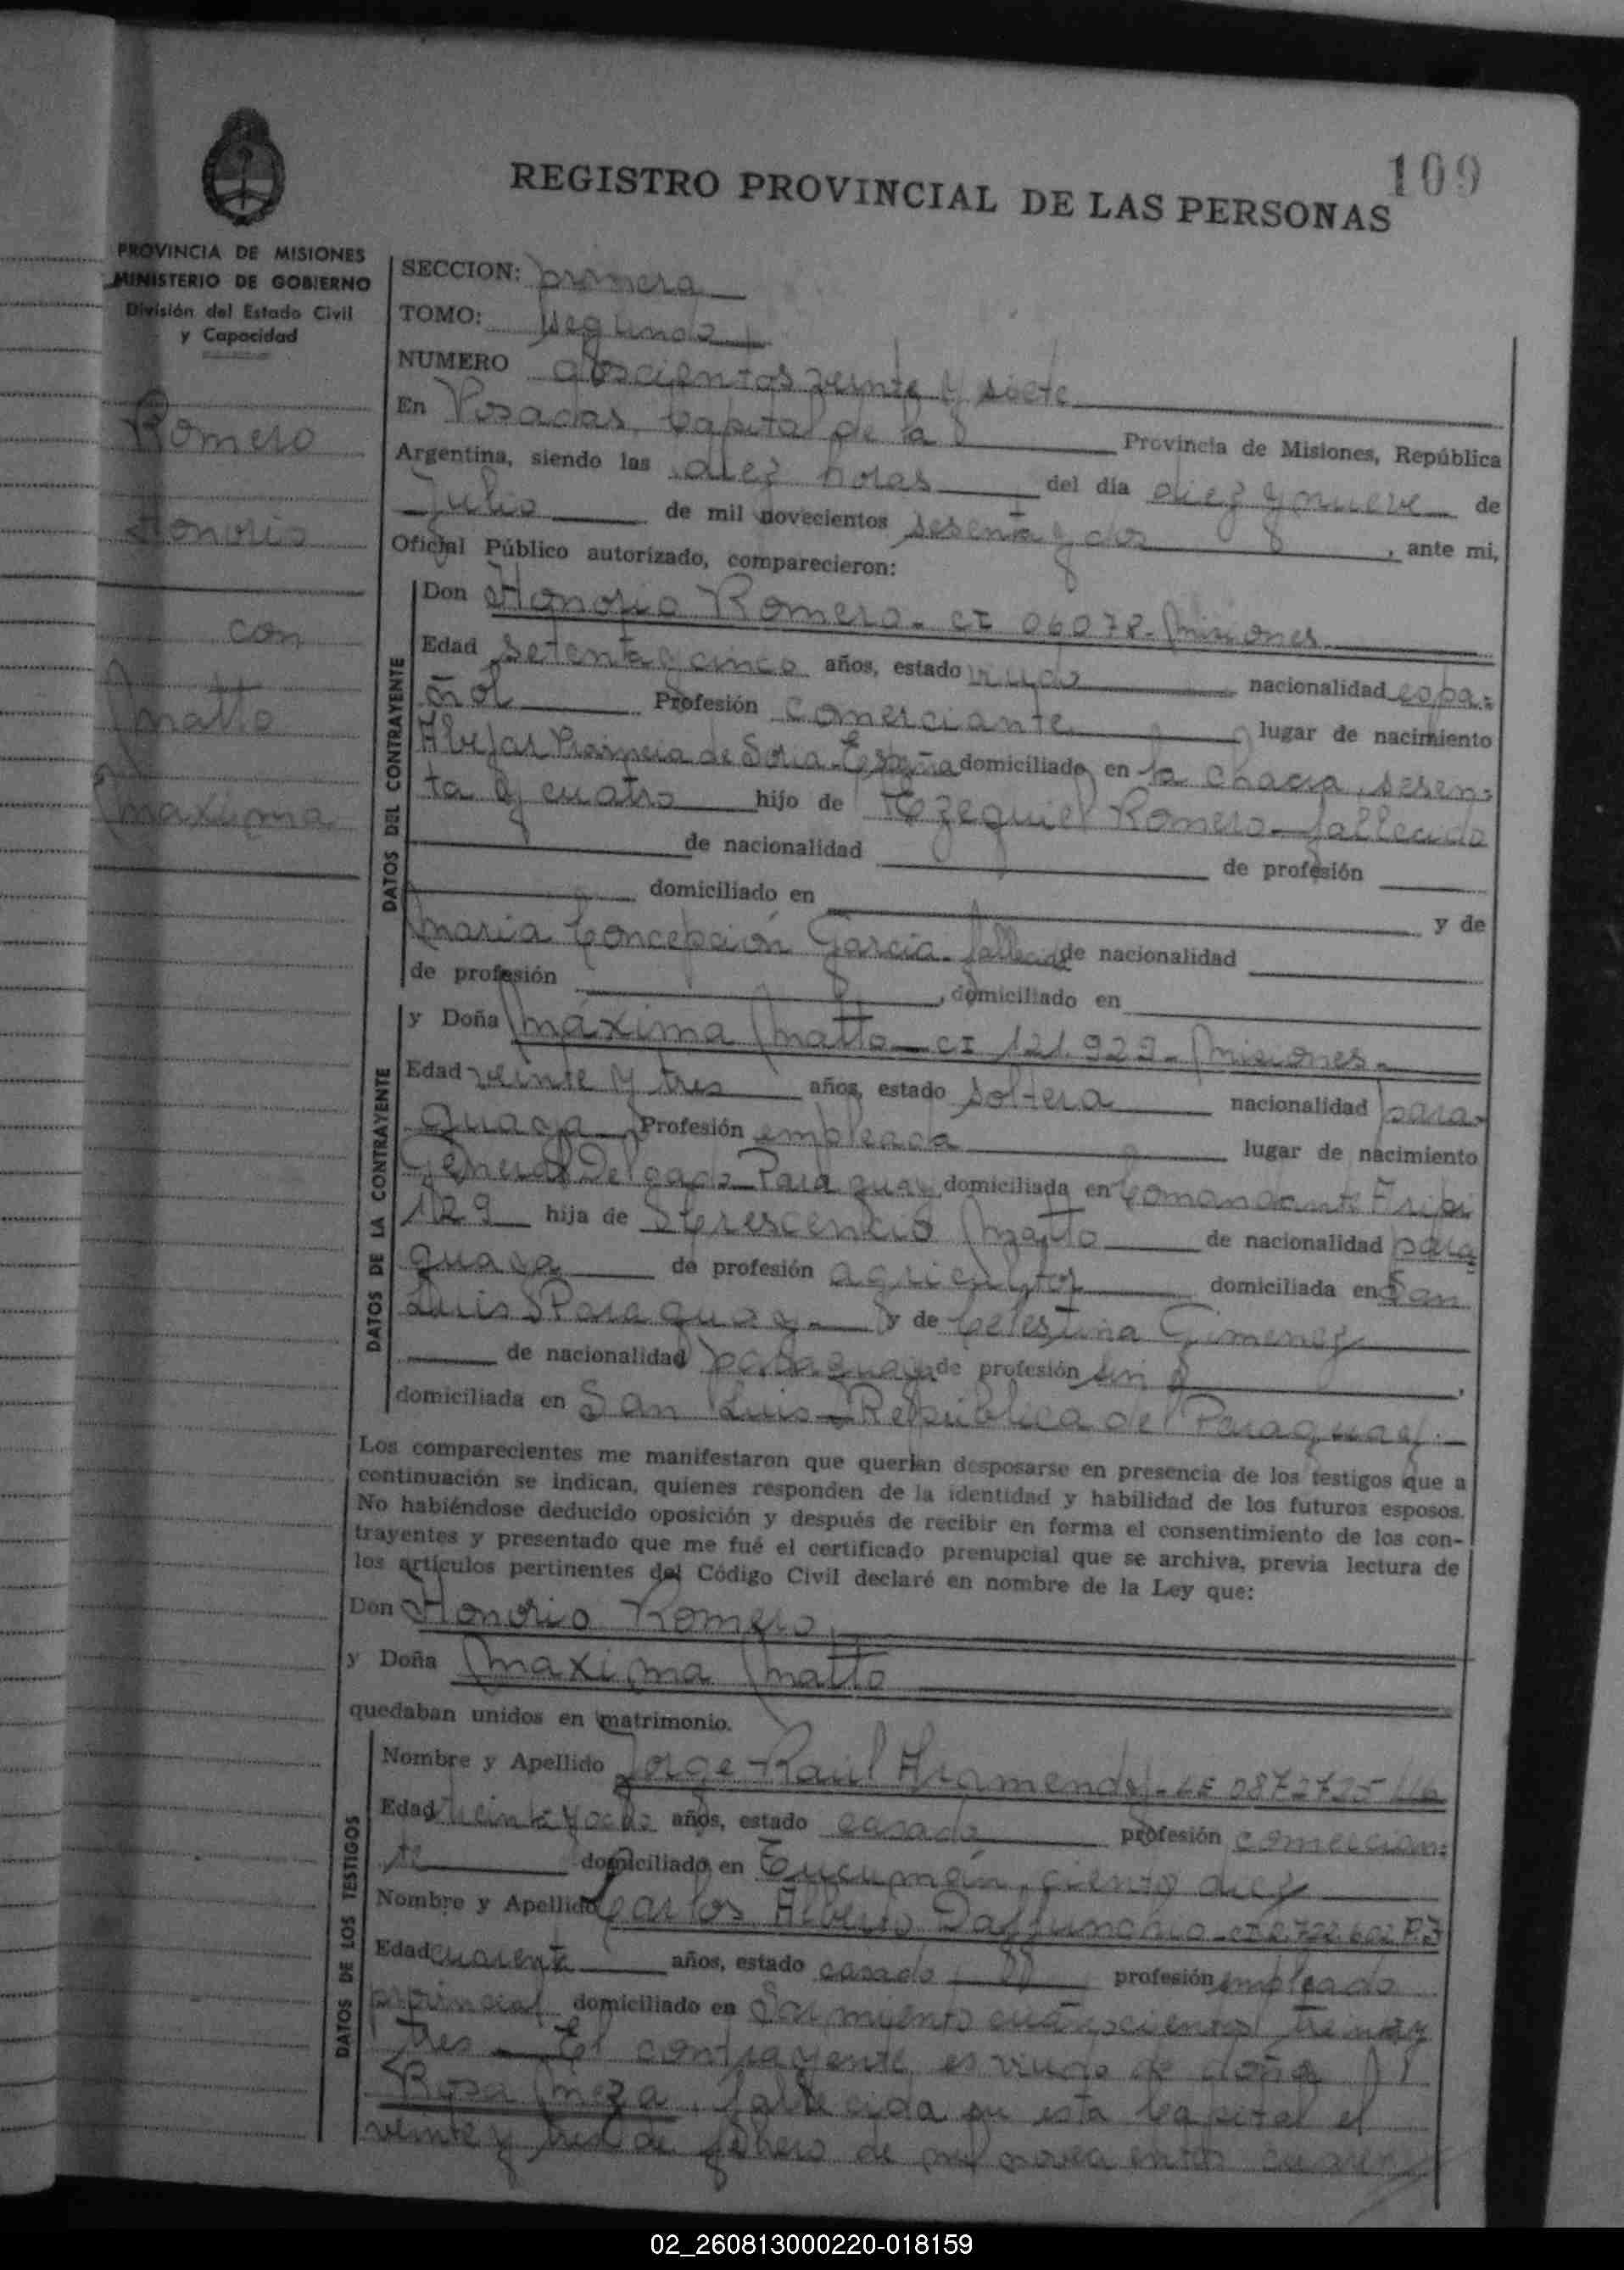 109
REGISTRO PROVINCIAL DE LAS PERSONAS
PROVINCIA DE MISIONES
MINISTERIO DE GOBIERNO
División del Estado Civil
y Capacidad
Romero
Honorio
con
Matto
Maxima
SECCION: primera
TOMO: segundo
NUMERO doscientos veinte y siete
En Posadas, Capital de la Provincia de Misiones, República
Argentina, siendo las diez horas del día diez y nueve de
Julio de mil novecientos sesenta y dos, ante mi,
Oficial Público autorizado, comparecieron:
DATOS DEL CONTRAYENTE
Don Honorio Romero - CI 06078 - Misiones
Edad setenta y cinco años, estado viudo nacionalidad espa-
ñol Profesión comerciante lugar de nacimiento
Provincia de Soria - España domiciliado en la chacra, sesen-
ta y cuatro hijo de Ezequiel Romero - fallecido
de nacionalidad de profesión
domiciliado en y de
Maria Concepción Garcia - fallecida de nacionalidad
de profesión , domiciliado en
DATOS DE LA CONTRAYENTE
y Doña Máxima Matto - CI 121.929 - Misiones -
Edad veinte y tres años, estado soltera nacionalidad para-
guaya Profesión empleada lugar de nacimiento
General Delgado - Paraguay domiciliada en Comandante
129 hija de Matto de nacionalidad para
guaya de profesión agricultor domiciliada en San
Luis Paraguay - y de Celestina Gimenez
de nacionalidad paraguaya de profesión sin ,
domiciliada en San Luis - República del Paraguay -
Los comparecientes me manifestaron que querían desposarse en presencia de los testigos que a
continuación se indican, quienes responden de la identidad y habilidad de los futuros esposos.
No habiéndose deducido oposición y después de recibir en forma el consentimiento de los con-
trayentes y presentado que me fué el certificado prenupcial que se archiva, previa lectura de
los artículos pertinentes del Código Civil declaré en nombre de la Ley que:
Don Honorio Romero
y Doña Maxima Matto
quedaban unidos en matrimonio.
DATOS DE LOS TESTIGOS
Nombre y Apellido Jorge Raul
Edad años, estado casado profesión comercian-
te domiciliado en Tucumán, ciento diez
Nombre y Apellido Carlos Alberto Daffunchio - CI 2.722.602 P.F
Edad cuarenta años, estado casado profesión empleado
provincial domiciliado en Sarmiento cuatrocientos treinta y
tres - El contrayente es viudo de doña
Rosa Meza, fallecida en esta Capital el
veinte y tres de febrero de mil novecientos cuaren
02_260813000220-018159